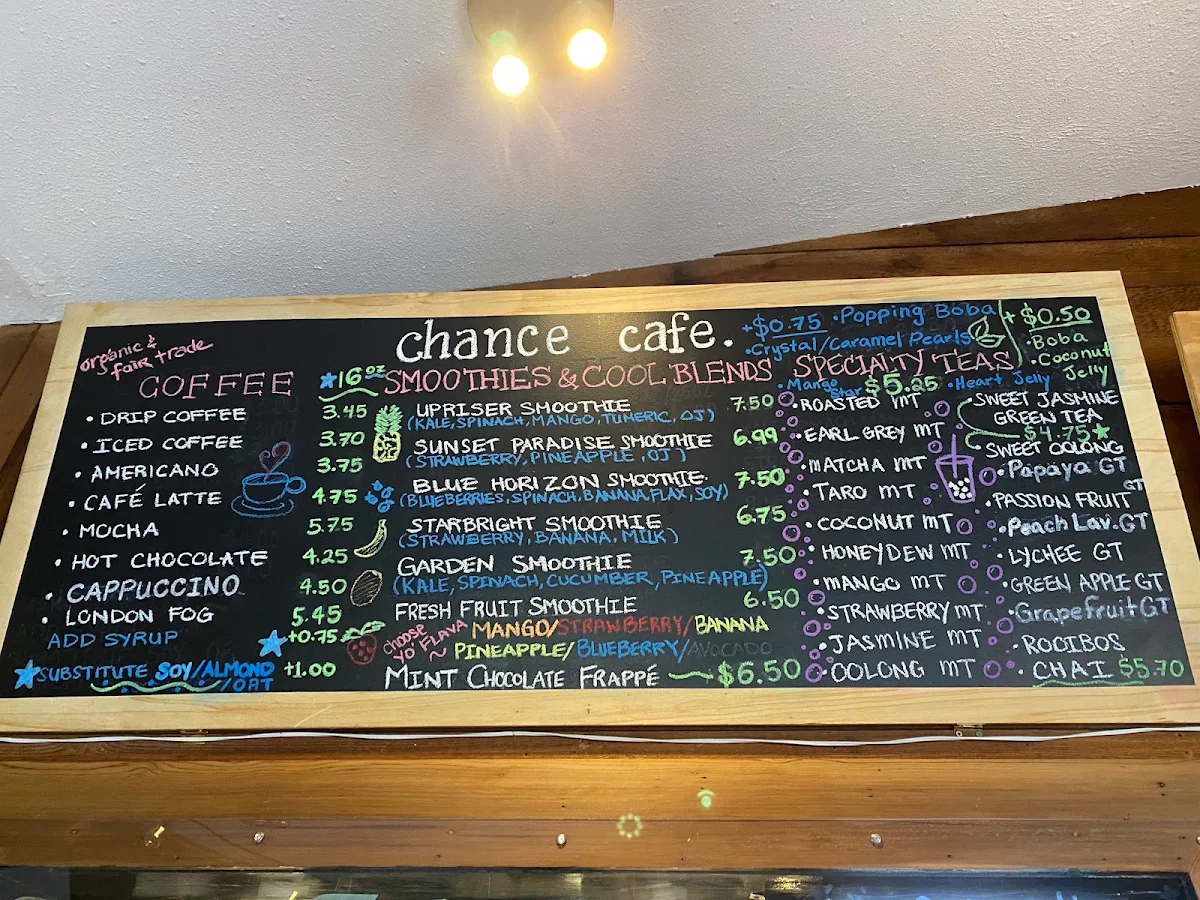 chance cafe.
+$0.75 • Popping Boba
• Crystal/Caramel Pearls
• Mango Star
• Heart Jelly
+ $0.50
• Boba
• Coconut Jelly
organic &
fair trade
COFFEE
*16oz
• DRIP COFFEE 3.45
• ICED COFFEE 3.70
• AMERICANO 3.75
• CAFÉ LATTE 4.75
• MOCHA 5.75
• HOT CHOCOLATE 4.25
• CAPPUCCINO 4.50
• LONDON FOG 5.45
ADD SYRUP +0.75
SUBSTITUTE SOY/ALMOND +1.00
/OAT
SMOOTHIES & COOL BLENDS
UPRISER SMOOTHIE 7.50
(KALE, SPINACH, MANGO, TUMERIC, OJ)
SUNSET PARADISE SMOOTHIE 6.99
(STRAWBERRY, PINEAPPLE, OJ)
BLUE HORIZON SMOOTHIE 7.50
(BLUEBERRIES, SPINACH, BANANA, FLAX, SOY)
STARBRIGHT SMOOTHIE 6.75
(STRAWBERRY, BANANA, MILK)
GARDEN SMOOTHIE 7.50
(KALE, SPINACH, CUCUMBER, PINEAPPLE)
FRESH FRUIT SMOOTHIE 6.50
choose
yo' FLAVA
~
MANGO/STRAWBERRY/BANANA
PINEAPPLE/BLUEBERRY/AVOCADO
MINT CHOCOLATE FRAPPÉ $6.50
SPECIALTY TEAS
$5.25
• ROASTED MT
• EARL GREY MT
• MATCHA MT
• TARO MT
• COCONUT MT
• HONEYDEW MT
• MANGO MT
• STRAWBERRY MT
• JASMINE MT
• OOLONG MT
SWEET JASMINE
GREEN TEA
$4.75
SWEET OOLONG
• Papaya GT
• PASSION FRUIT GT
• Peach Lav. GT
• LYCHEE GT
• GREEN APPLE GT
• Grapefruit GT
• ROOIBOS
• CHAI $5.70